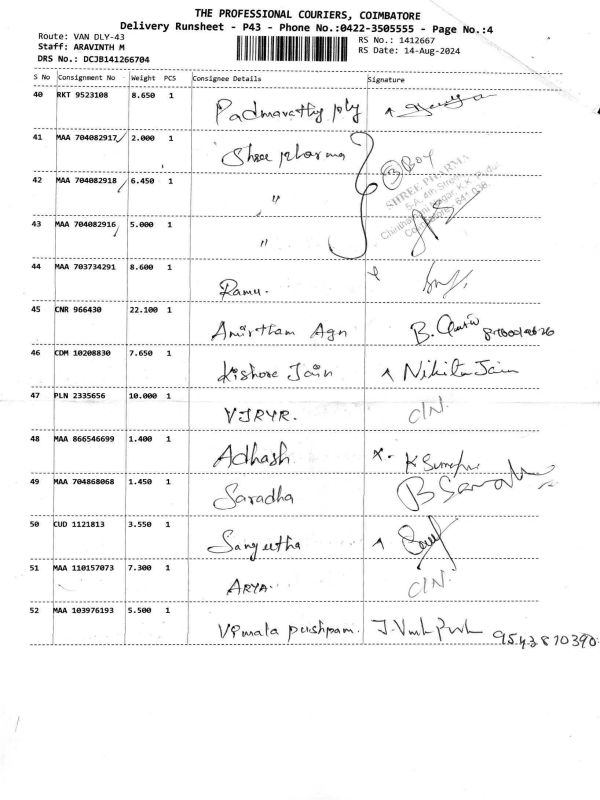 THE PROFESSIONAL COURIERS, COIMBATORE
Delivery Runsheet - P43 - Phone No.:0422-3505555 - Page No.:4
Route: VAN DLY-43
Staff: ARAVINTH M
DRS No.: DCJB141266704
RS No.: 1412667
RS Date: 14-Aug-2024
S No Consignment No Weight PCS Consignee Details Signature
40 RKT 9523108 8.650 1 Padmavathy ply
41 MAA 704082917 2.000 1 Shree pharma
3 Boy
SHREE PHARMA
5-A, 4th Street
42 MAA 704082918 6.450 1 "
Coimbatore - 641 038.
43 MAA 704082916 5.000 1 "
44 MAA 703734291 8.600 1 Ramu.
45 CNR 966430 22.100 1 Amirtham Agn B.
46 CDM 10208830 7.650 1 Kishore Jain Nikita Jain
47 PLN 2335656 10.000 1 VJRYR. C/N.
48 MAA 866546699 1.400 1 Adhash K
49 MAA 704868068 1.450 1 Saradha B
50 CUD 1121813 3.550 1 Sangeetha
51 MAA 110157073 7.300 1 ARYA. C/N.
52 MAA 103976193 5.500 1 Vimala pushpam. J. 9543870390